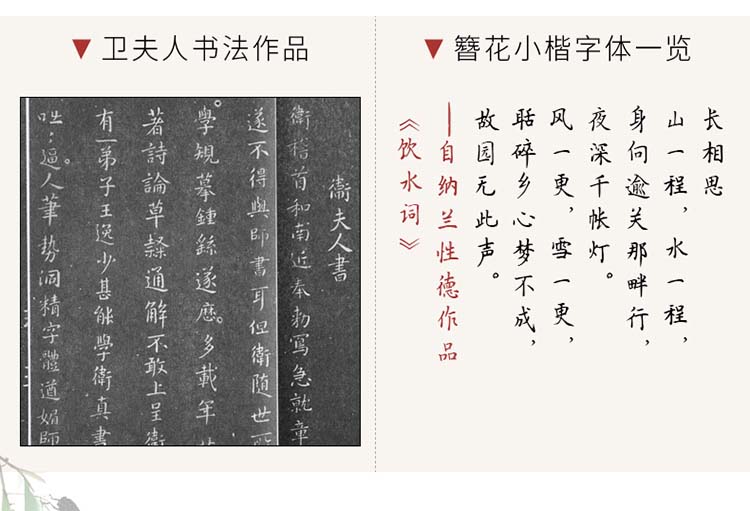 卫夫人书法作品
衞夫人書
衛稽首和南近奉勅寫急就章
遂不得與師書耳但衛隨世所
學規摹鍾繇遂歷多載年廿
著詩論草隸通解不敢上呈衛
有一弟子王逸少甚能學衛真書
咄咄逼人筆勢洞精字體遒媚師
簪花小楷字体一览
长相思
山一程，水一程，
身向逾关那畔行，
夜深千帐灯。
风一更，雪一更，
聒碎乡心梦不成，
故园无此声。
—自纳兰性德作品
《饮水词》